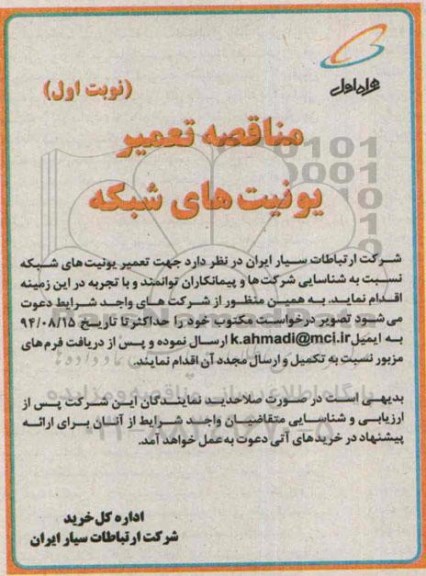 همراه اول
(نوبت اول)
مناقصه تعمیر
یونیت های شبکه
شرکت ارتباطات سیار ایران در نظر دارد جهت تعمیر یونیت های شبکه
نسبت به شناسایی شرکت ها و پیمانکاران توانمند و با تجربه در این زمینه
اقدام نماید. به همین منظور از شرکت های واجد شرایط دعوت
می شود تصویر درخواست مکتوب خود را حداکثر تا تاریخ ۹۴/۰۸/۱۵
به ایمیل k.ahmadi@mci.ir ارسال نموده و پس از دریافت فرم های
مزبور نسبت به تکمیل و ارسال مجدد آن اقدام نمایند.
بدیهی است در صورت صلاحدید نمایندگان این شرکت پس از
ارزیابی و شناسایی متقاضیان واجد شرایط از آنان برای ارائه
پیشنهاد در خریدهای آتی دعوت به عمل خواهد آمد.
اداره کل خرید
شرکت ارتباطات سیار ایران